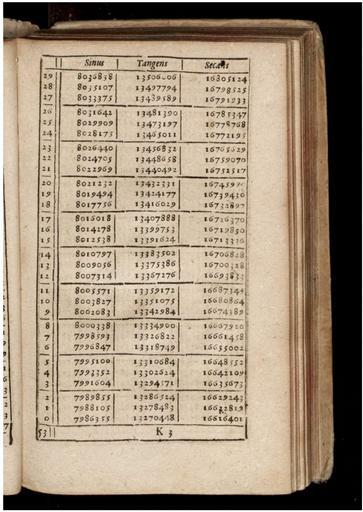 Sinus Tangens Secans
29 8036838 13506006 16805124
28 8035107 13497794 16798525
27 8033375 13489589 16791933
26 8031642 13481390 16785347
25 8029909 13473197 16778768
24 8028175 13465011 16772195
23 8026440 13456832 16765629
22 8024705 13448658 16759070
21 8022969 13440492 16752517
20 8021232 13432331
19 8019494 13424177 16739430
18 8017756 13416029 16732897
17 8016018 13407888 16726370
16 8014278 13399753 16719850
15 8012538 13391624 16713336
14 8010797 13383502 16706828
13 8009056 13375386 16700328
12 8007314 13367276 16693833
11 8005571 13359172
10 8003827 13351075 16680864
9 8002083 13342984 16674389
8 8000338 13334900 16667920
7 7998593 13326822 16661458
6 7996847 13318749 16655002
5 7995100 13310684 16648552
4 7993352 13302624 16642109
3 7991604 13294571 16635673
2 7989855 13286524 16629243
1 7988105 13278483 16622819
0 7986355 13270448 16616401
53 K 3